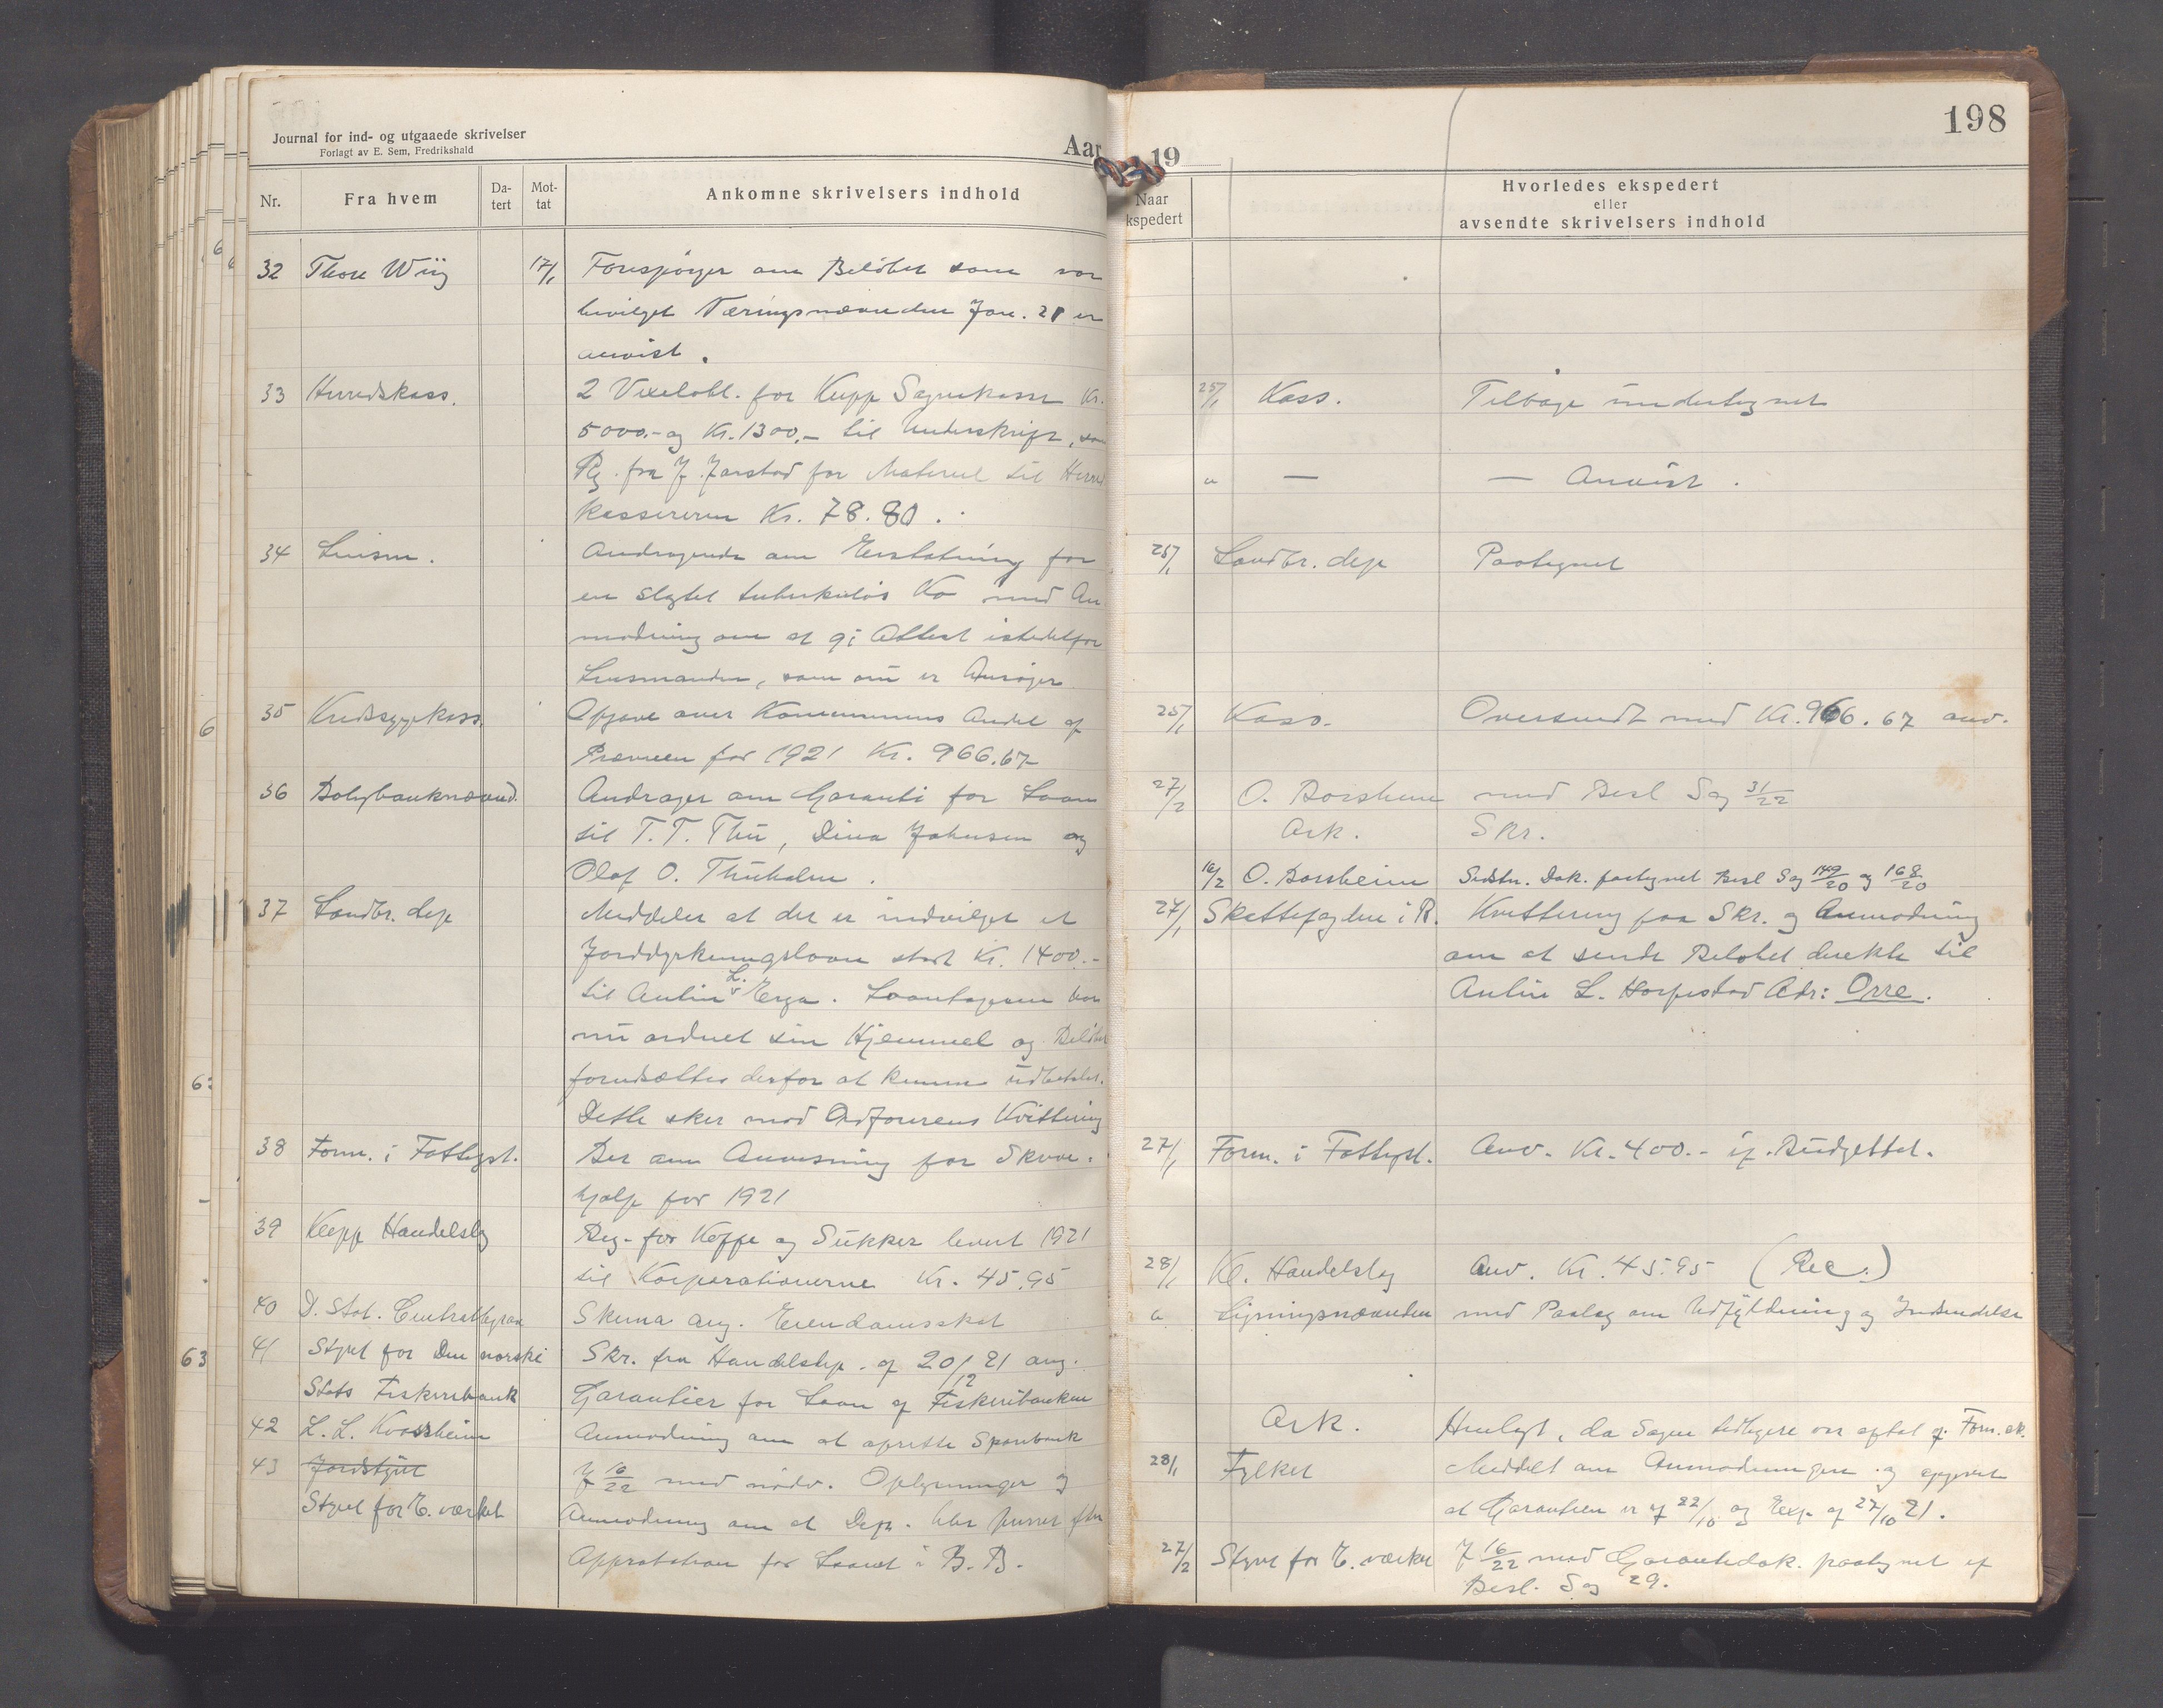 Journal for ind- og utgaaede skrivelser
Forlagt av E. Sem, Fredrikshald
Aar
Nr. Fra hvem Da-tert Mot-tat Ankomne skrivelsers indhold
32 Thore Wiig 17/1 Forespörger om Belöbet som var
bevilget Næringsnævnden Jan. 21 er
anvist.
33 Herredskass. 2 Vexelobl. for Klepp Sognekasse Kr.
5000.- og Kr. 1300.- til Underskrift, som
Rg. fra J. Jarstad for Materiel til Herred
kassereren Kr. 78.80.
34 Lensm. Andragende om Erstatning for
en slagtet tuberkulös Ko med An
modning om at gi Attest istedetfor
Lensmanden, som nu er Ansöger
35 Kredssygekass. Opgave over Kommunens Andel af
Præmien for 1921 Kr. 966.67
36 Boligbanknævnd. Andrager om Garanti for Laan
til T. T. Thu, Dina Johnsen og
Olaf O. Thuholm.
37 Landbr. dep Meddeler at der er indvilget et
Jorddyrkningslaan stort Kr. 1400.-
til Anton L. Erga. Laantageren har
nu ordnet sin Hjemmel og Belöbet
forudsættes derfor at kunne udbetales.
Dette sker mod Ordförerens Kvittering
38 Form. i Fattigst. Ber om Anvisning for Skole-
hjælp for 1921
39 Klepp Handelslg Reg. for Kaffe og Sukker levert 1921
til Korporationerne Kr. 45.95
40 D. Stat. Centralbyraa Skema ang. Eiendomsskat
41 Styret for Den norske Skr. fra Handelsdep. af 20/12 21 ang.
Stats Fiskeribank Garantier for Laan af Fiskeribanken
42 L. L. Kvassheim Anmodning om at oprette Sparebank
43 Jordstyret J 16/22 med nödv. Oplysninger og
Styret for E. værket Anmodning om at Dep. blir purret efter
Approbation for Laanet i B. B.
19
198
Naar ekspedert Hvorledes ekspedert
eller
avsendte skrivelsers indhold
25/1 Kass. Tilbage undertegnet
" — — Anvist.
25/1 Landbr. dep Paategnet
25/1 Kass. Oversendt med Kr. 966.67 anv.
27/2 O. Borsheim med Besl Sag 31/22
Ark. Skr.
16/2 O. Borsheim Sidstn. Dok. paategnet Besl Sag 149/20 og 168/20
27/1 Skattefogden i R. Kvittering paa Skr. og Anmodning
om at sende Belöbet direkte til
Anton L. Horpestad Adr: Orre.
27/1 Form. i Fattigst. Anv. Kr. 400.- if. Budgettet.
28/1 Kl. Handelslag Anv. Kr. 45.95 (Rec.)
" Ligningsnævnden med Paalæg om Udfyldning og Indsendelse
Ark. Henlagt, da Sagen tidligere var avslaat af Form.sk.
28/1 Fylket Meddelt om Anmodningen og opgivet
at Garantien er af 22/10 og Exp. af 27/10 21.
27/2 Styret for E. værket J 16/22 med Garantidok. paategnet if
Besl. Sag 29.